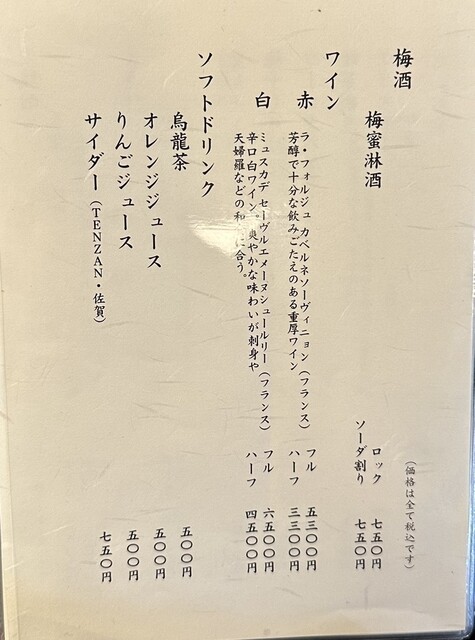 梅酒
梅蜜淋酒
(価格は全て税込です)
ロック 七五〇円
ソーダ割り 七五〇円
ワイン
赤
ラ・フォルジュ カベルネソーヴィニョン(フランス) フル 五三〇〇円
芳醇で十分な飲みごたえのある重厚ワイン ハーフ 三三〇〇円
白
ミュスカデ セーヴルエメーヌシュールリー(フランス) フル 六五〇〇円
辛口白ワイン。爽やかな味わいが刺身や ハーフ 四五〇〇円
天婦羅などの和 に合う。
ソフトドリンク
烏龍茶 五〇〇円
オレンジジュース 五〇〇円
りんごジュース 五〇〇円
サイダー(TENZAN・佐賀) 七五〇円